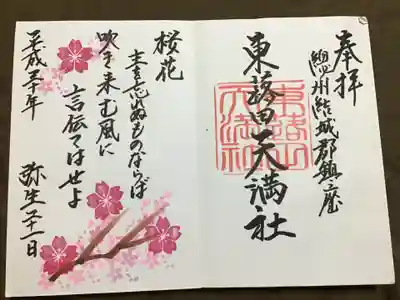 奉拝
總州結城郡鎮座
東蕗田天満社
東蕗田
天満社
桜花
主を忘れぬものならば
吹き来む風に
言伝てはせよ
平成三十年 弥生三十一日